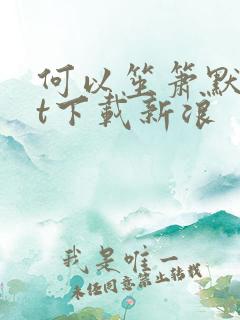 何以笙箫默
t下载新浪
我是唯一
未经同意禁止转载